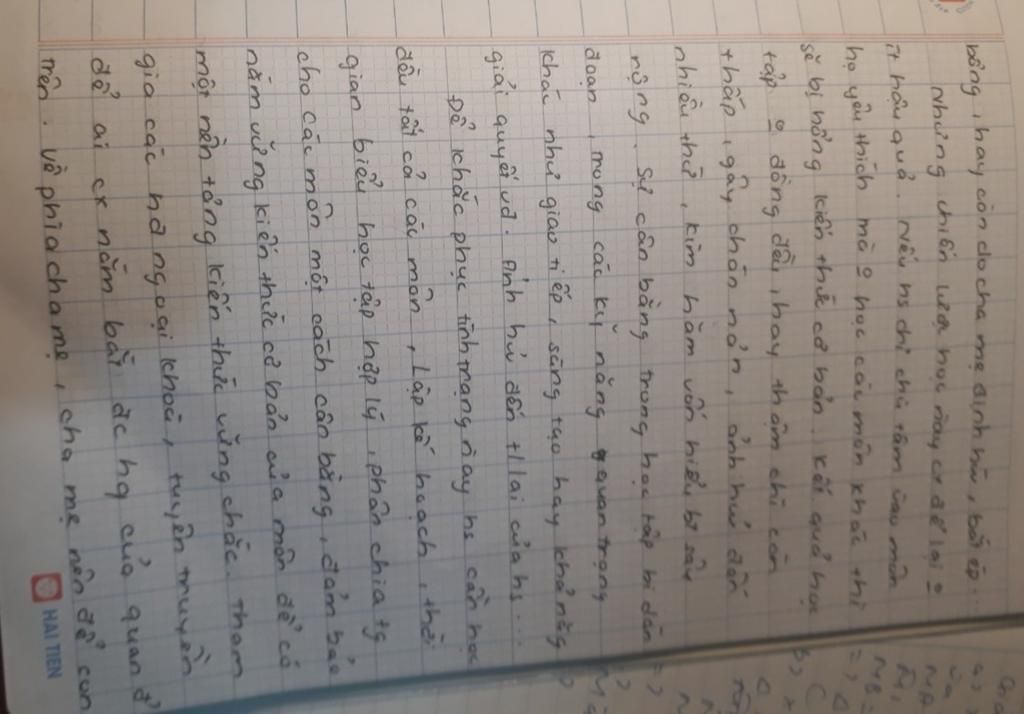 bổng, hay còn do cha mẹ định hư, bắt ép...
Những chiến lược học này cx để lại o
ít hậu quả. Nếu hs chỉ chú tâm vào môn
họ yêu thích mà o học các môn khác thì
sẽ bị hổng kiến thức cơ bản. Kết quả học
tập o đồng đều, hay thậm chí còn
thấp, gây chán nản, ảnh hư đến
nhiều thứ, kìm hãm vốn hiểu bt sâu
rộng. Sự cân bằng trong học tập bị dán
đoạn, trong các kỹ năng quan trọng
khác như giao tiếp, sáng tạo hay khả năng
giải quyết vđ. Ảnh hư đến tl lai của hs...
Để khắc phục tình trạng này hs cần học
đều tất cả các môn, lập kế hoạch, thời
gian biểu học tập hợp lý, phân chia tg
cho các môn một cách cân bằng, đảm bảo
nắm vững kiến thức cơ bản của môn để có
một nền tảng kiến thức vững chắc. Tham
gia các hđ ngoại khoá, tuyên truyền
để ai cx nắm bắt đc hq của quan đ
trên. Về phía cha mẹ, cha mẹ nên để con
HẢI TIẾN